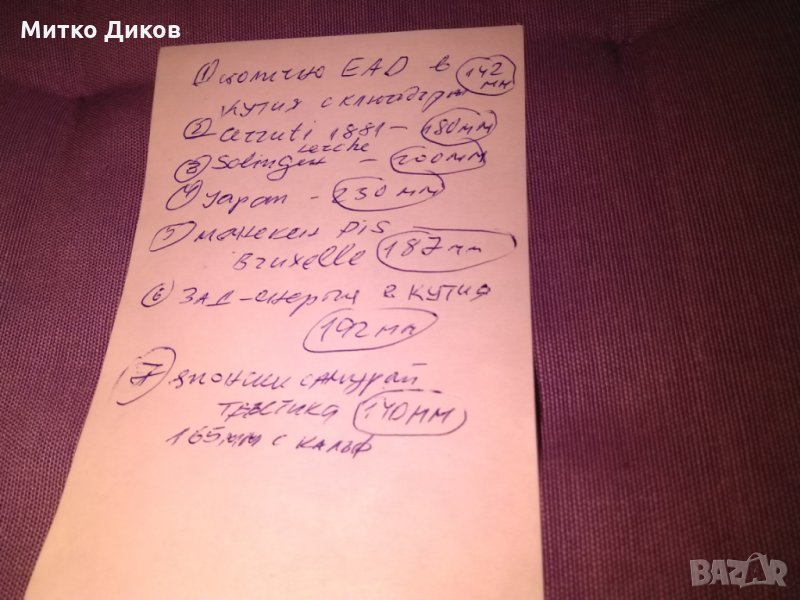 Митко Диков
① столично EAD в 142 мм
кутия с ключодърж
② Cerruti 1881 - 180мм
③ Solingen Lerche - 200мм
④ Japan - 230 мм
⑤ манекен Pis
Bruxelle 187мм
⑥ ЗАД-енергия в кутия
192мм
⑦ японски самурай
тръстика 140мм
165мм с калъф
BAZAR